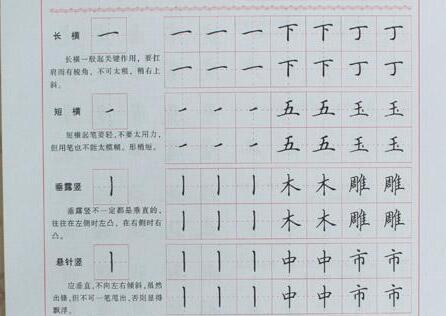 长横 一 一 一 一 下 下 丁 丁
长横一般起关键作用，要扛
肩而有棱角，不可太粗，稍右上
斜。
一 一 一 下 下 丁 丁
短横 ㇀ ㇀ ㇀ ㇀ 五 五 玉 玉
短横起笔要轻，不要太用力，
但用笔也不能太模糊。形稍短。
㇀ ㇀ ㇀ 五 五 玉 玉
垂露竖 丨 丨 丨 丨 木 木 雕 雕
垂露竖不一定都是垂直的，
往往在左侧时左凸，在右侧时右
凸。
丨 丨 丨 木 木 雕 雕
悬针竖 丨 丨 丨 丨 中 中 市 市
应垂直，不向左右倾斜，虽然
出锋，但不可一笔甩出，否则显得
飘浮。
丨 丨 丨 中 中 市 市